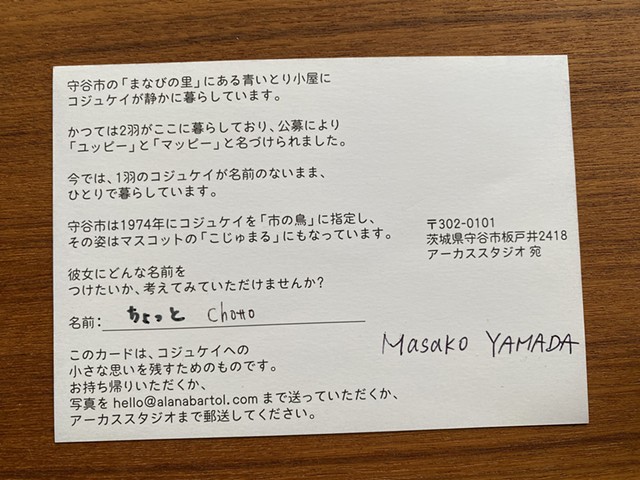 守谷市の「まなびの里」にある青いとり小屋に
コジュケイが静かに暮らしています。
かつては2羽がここに暮らしており、公募により
「ユッピー」と「マッピー」と名づけられました。
今では、1羽のコジュケイが名前のないまま、
ひとりで暮らしています。
守谷市は1974年にコジュケイを「市の鳥」に指定し、
その姿はマスコットの「こじゅまる」にもなっています。
彼女にどんな名前を
つけたいか、考えてみていただけませんか?
名前: ちょっと chotto
このカードは、コジュケイへの
小さな思いを残すためのものです。
お持ち帰りいただくか、
写真を hello@alanabartol.com まで送っていただくか、
アーカススタジオまで郵送してください。
〒302-0101
茨城県守谷市板戸井2418
アーカススタジオ 宛
Masako YAMADA